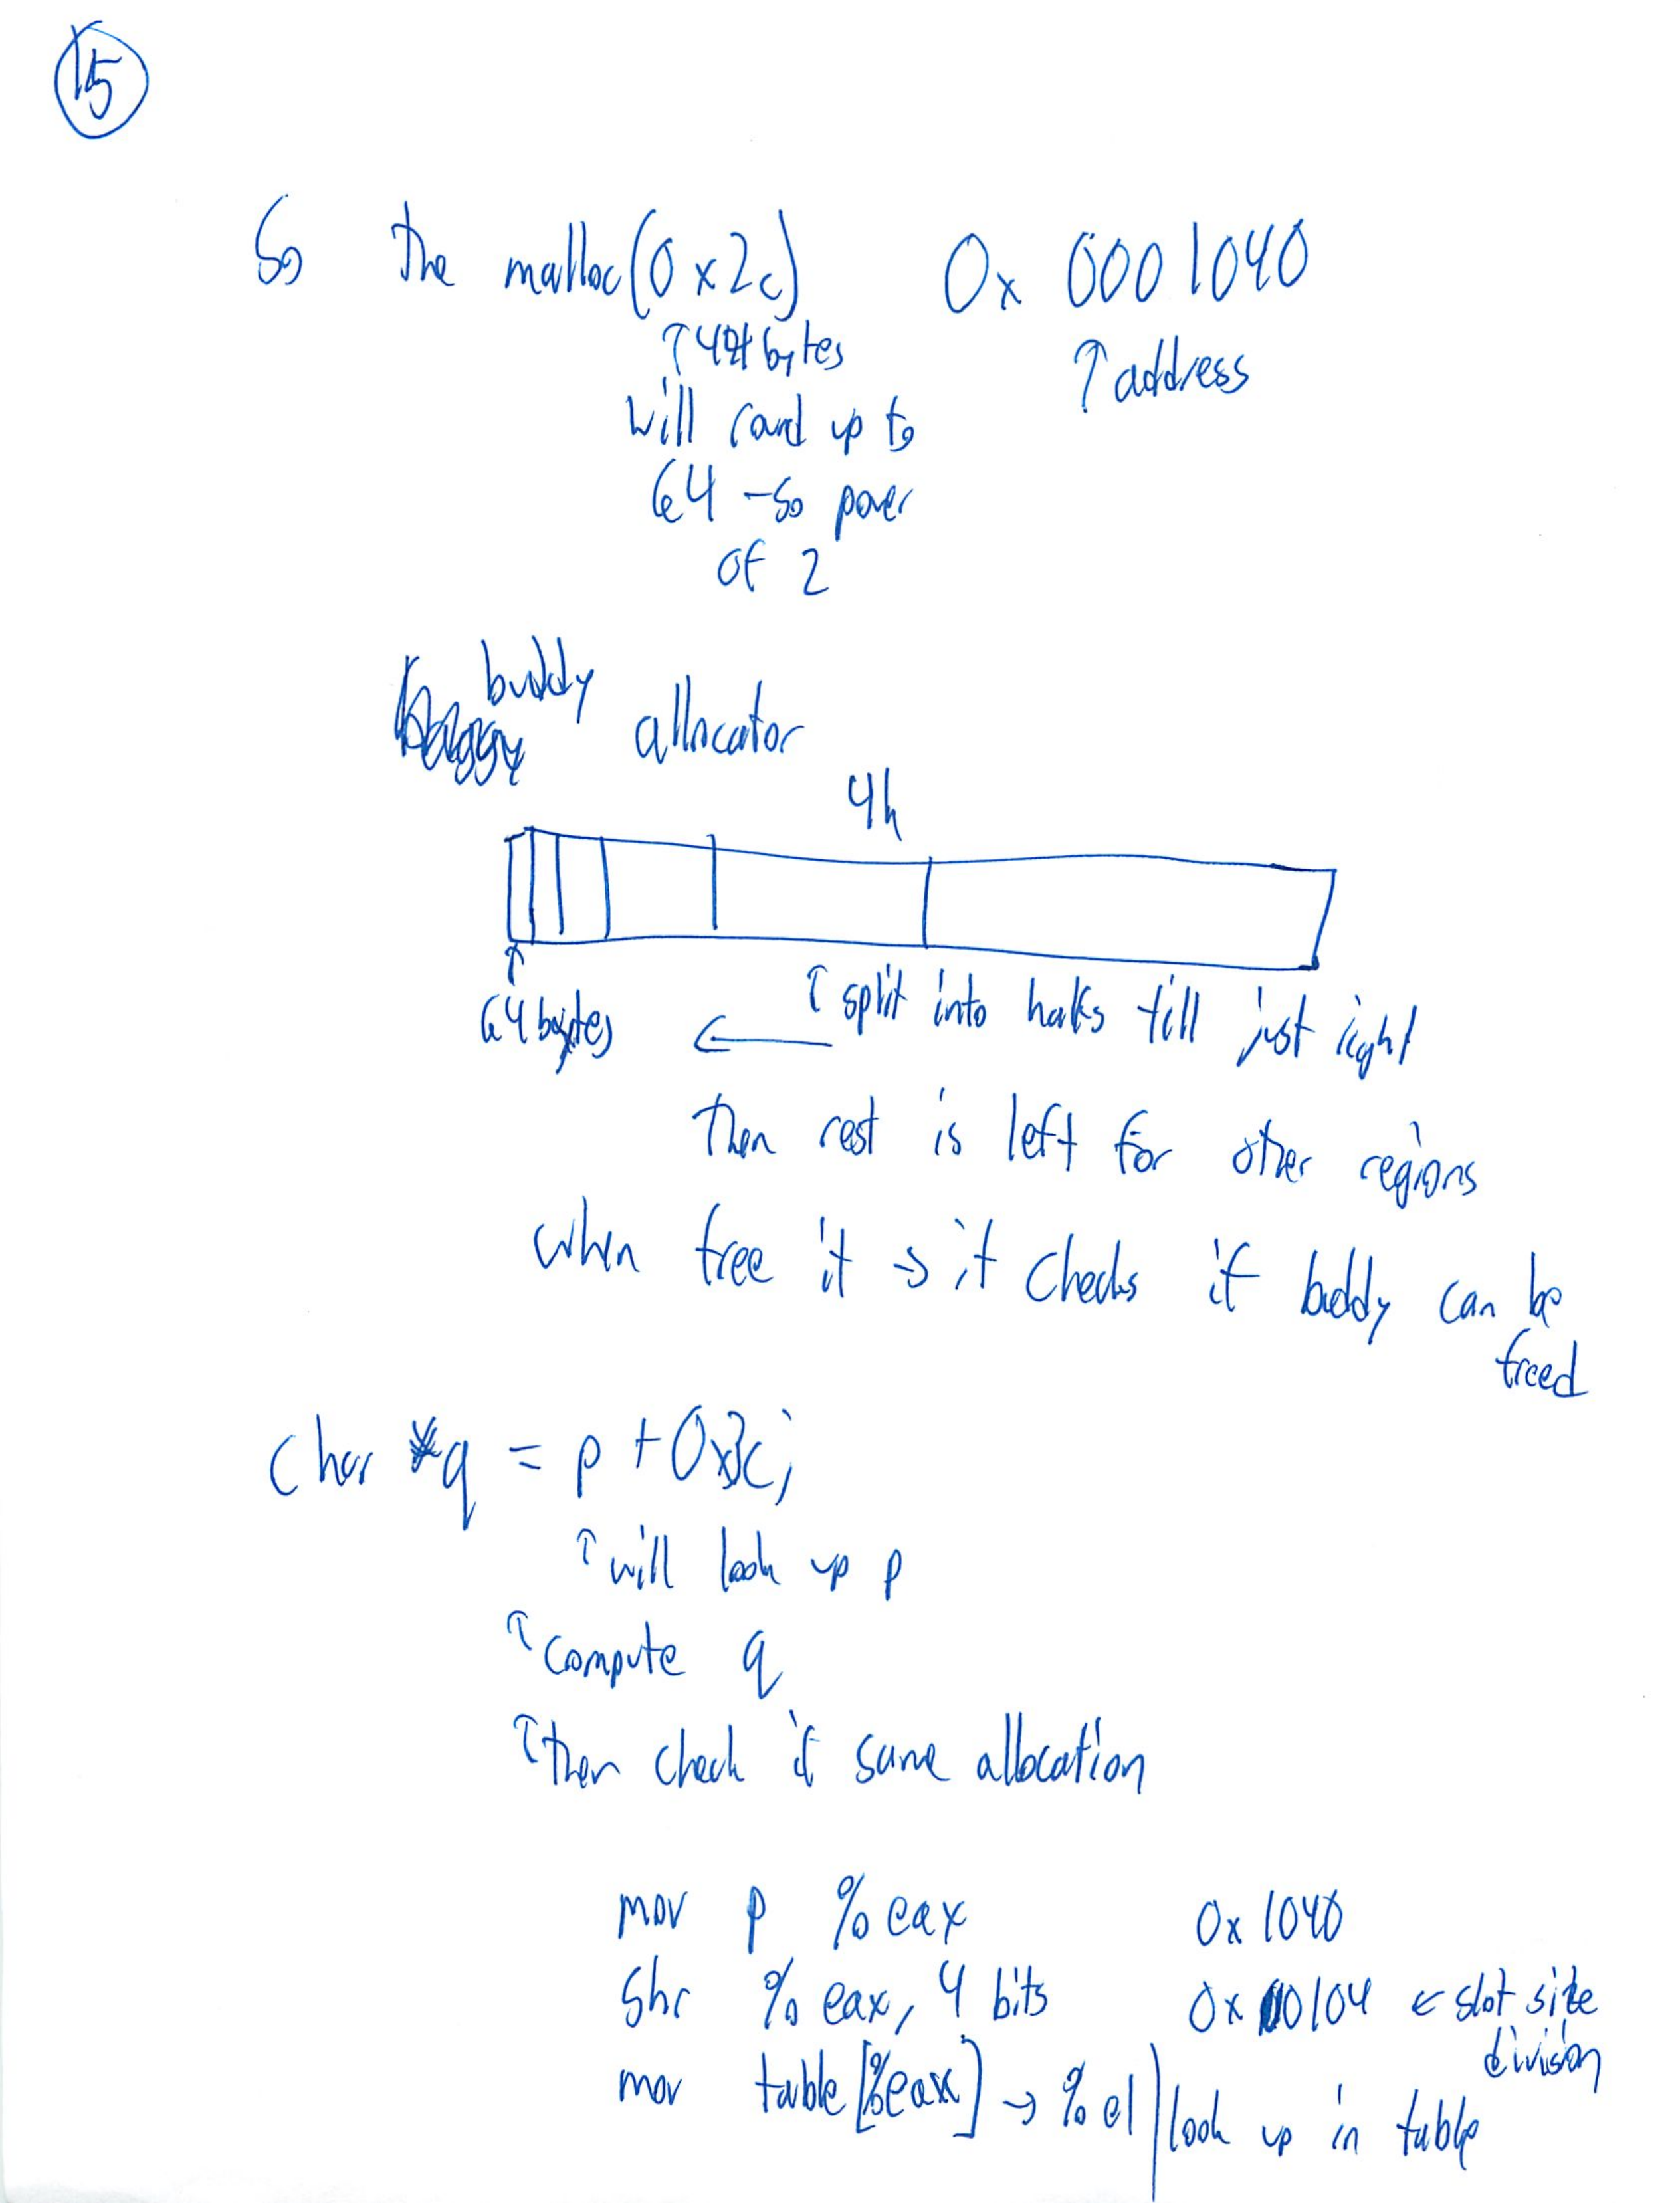 15
So the malloc(0x2c) 0x 0001040
↑ 44 bytes
↑ address
will round up to
64 - so power
of 2
buddy
baggy allocator
4k
64 bytes
↑ split into halfs till just right
←
then rest is left for other regions
when free it → it checks if buddy can be
freed
char *q = p + 0x3c;
↑ will look up p
↑ compute q
↑ then check if same allocation
mov p %eax 0x1040
shr %eax, 4 bits 0x00104 ← slot size
division
mov table[%eax] → %cl | look up in table